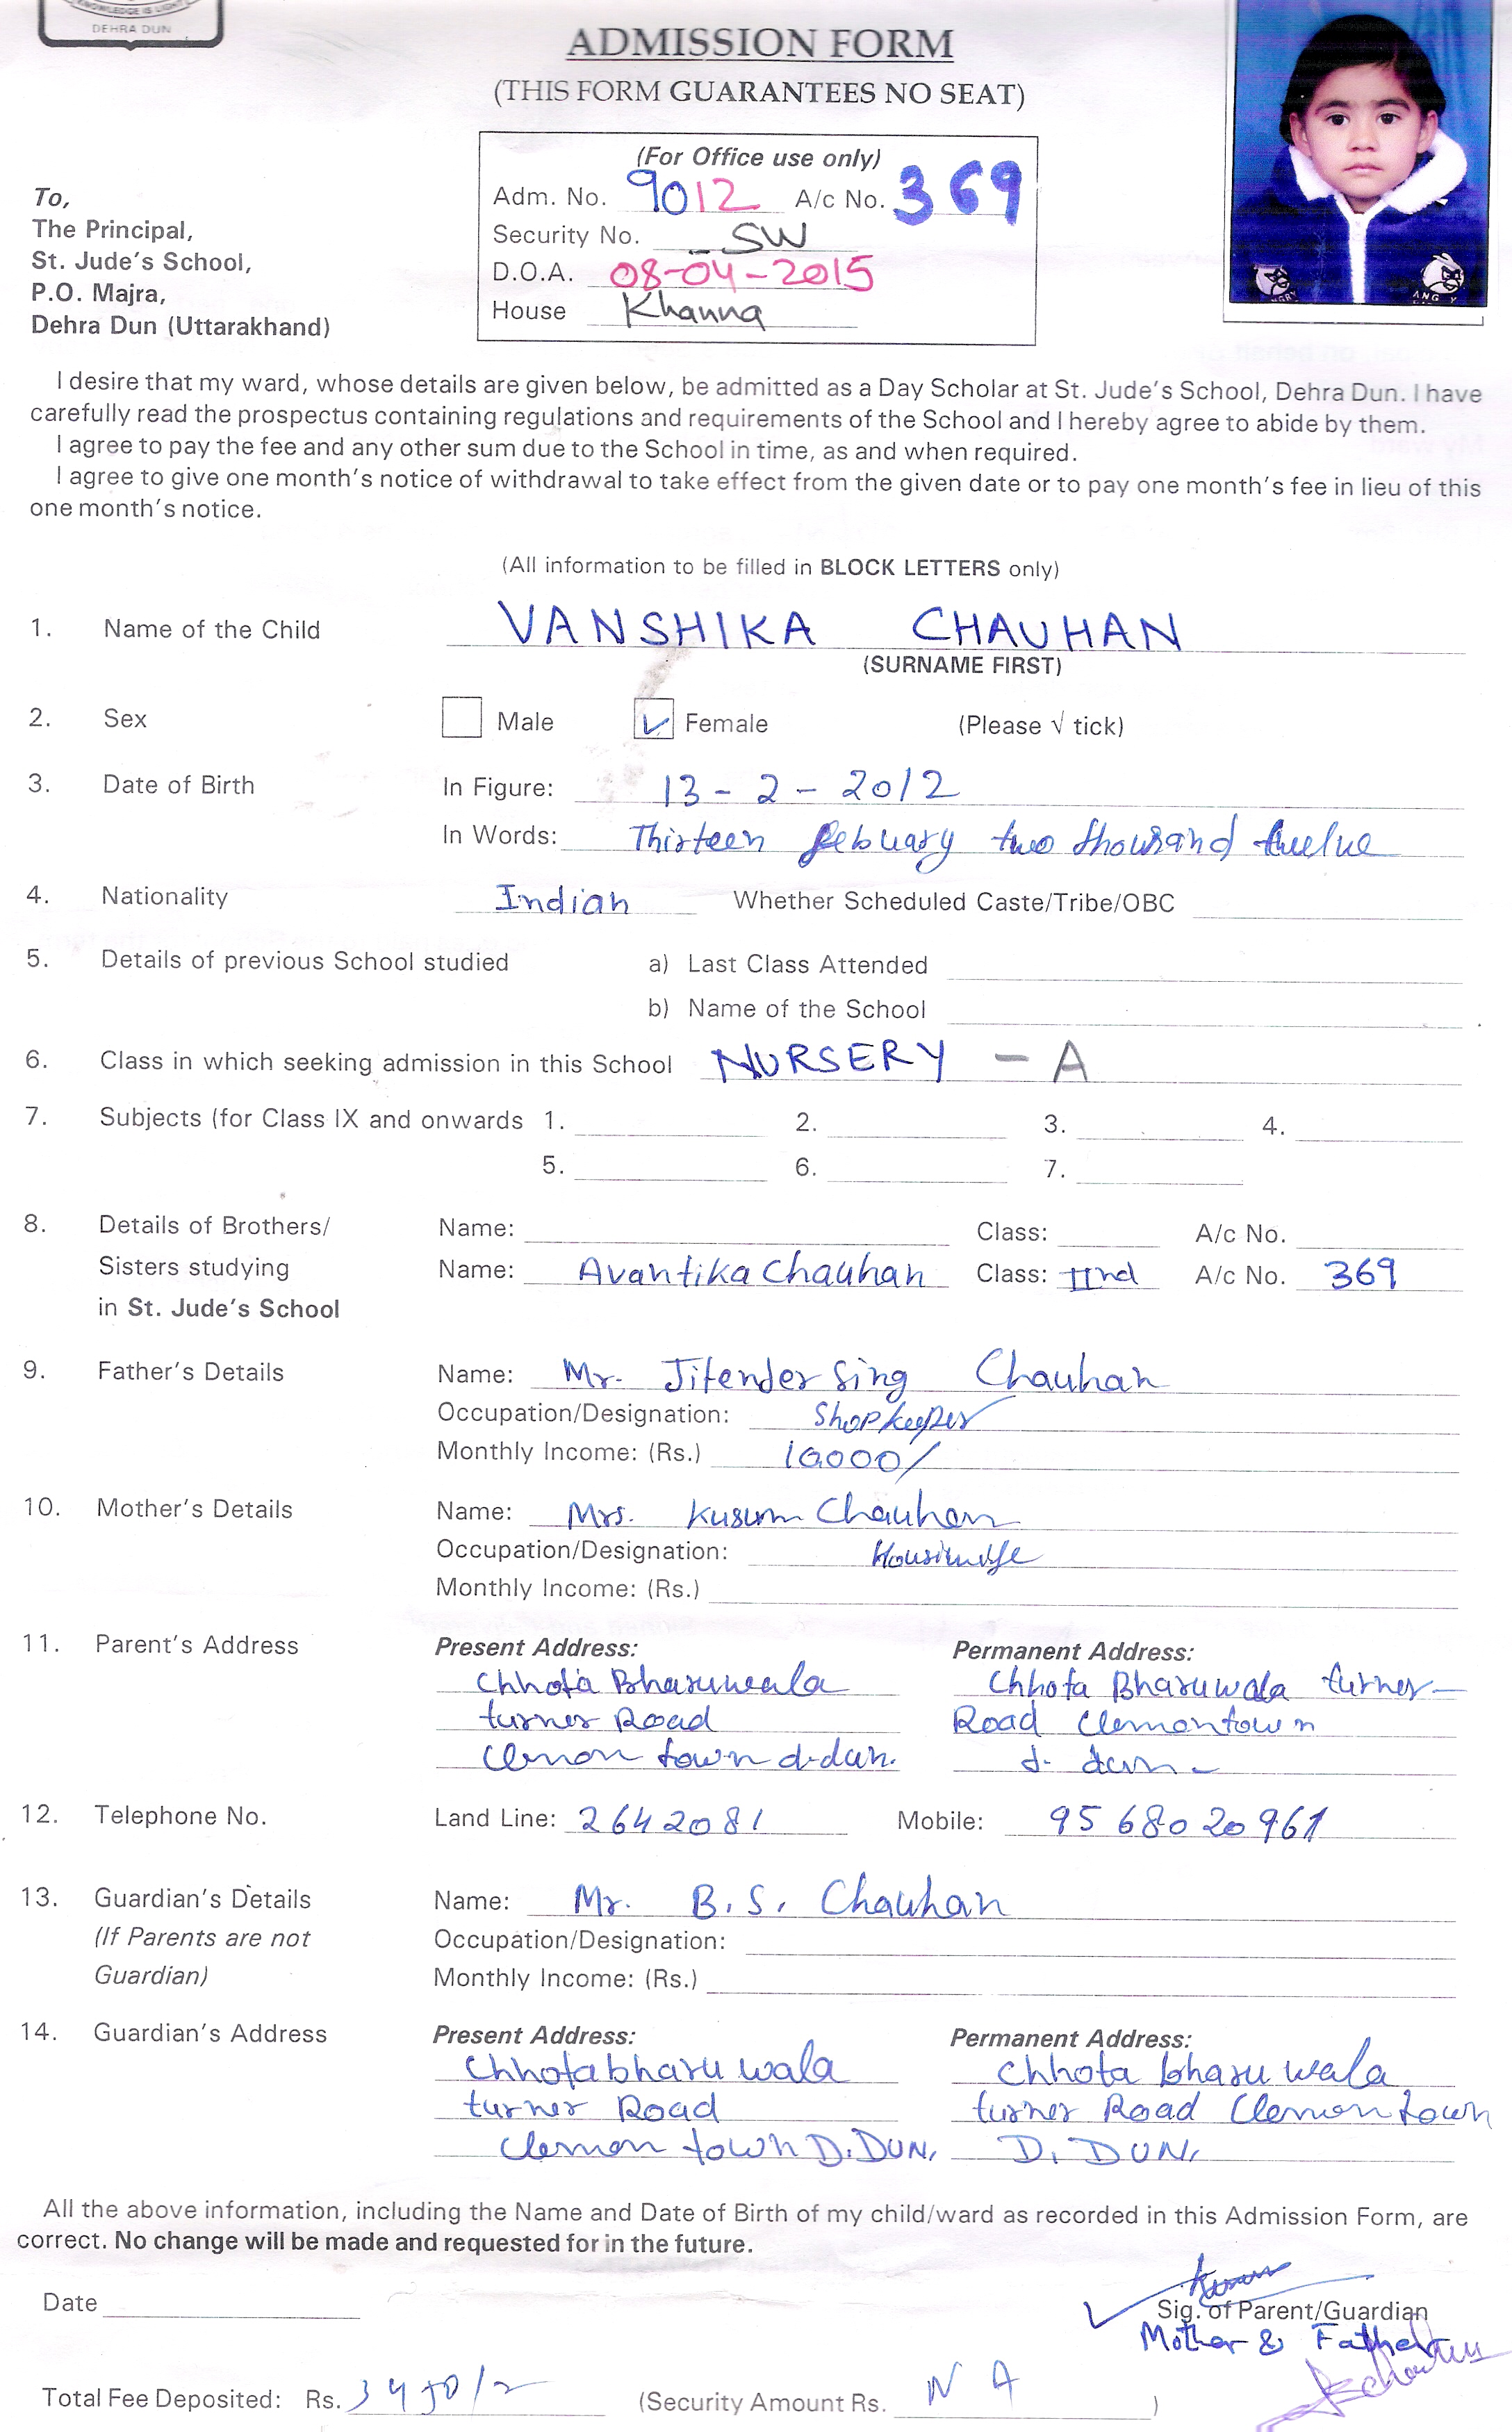 KNOWLEDGE IS LIGHT
DEHRA DUN
ADMISSION FORM
(THIS FORM GUARANTEES NO SEAT)
(For Office use only)
Adm. No. 9012 A/c No. 369
Security No. SW
D.O.A. 08-04-2015
House Khanna
To,
The Principal,
St. Jude's School,
P.O. Majra,
Dehra Dun (Uttarakhand)
I desire that my ward, whose details are given below, be admitted as a Day Scholar at St. Jude's School, Dehra Dun. I have
carefully read the prospectus containing regulations and requirements of the School and I hereby agree to abide by them.
I agree to pay the fee and any other sum due to the School in time, as and when required.
I agree to give one month's notice of withdrawal to take effect from the given date or to pay one month's fee in lieu of this
one month's notice.
(All information to be filled in BLOCK LETTERS only)
1. Name of the Child VANSHIKA CHAUHAN
(SURNAME FIRST)
2. Sex Male Female (Please √ tick)
3. Date of Birth In Figure: 13 - 2 - 2012
In Words: Thirteen febuary two thousand twelve
4. Nationality Indian Whether Scheduled Caste/Tribe/OBC
5. Details of previous School studied a) Last Class Attended
b) Name of the School
6. Class in which seeking admission in this School NURSERY - A
7. Subjects (for Class IX and onwards 1. 2. 3. 4.
5. 6. 7.
8. Details of Brothers/ Name: Class: A/c No.
Sisters studying Name: Avantika Chauhan Class: IInd A/c No. 369
in St. Jude's School
9. Father's Details Name: Mr. Jitender Sing Chauhan
Occupation/Designation: Shopkeeper
Monthly Income: (Rs.) 10000/
10. Mother's Details Name: Mrs. Kusum Chauhan
Occupation/Designation: Housiwife
Monthly Income: (Rs.)
11. Parent's Address Present Address: Permanent Address:
Chhota Bharuwala Chhota Bharuwala turner
turner Road Road Clemontown
Clemon town d-dun. d. dun
12. Telephone No. Land Line: 2642081 Mobile: 9568020961
13. Guardian's Details Name: Mr. B.S. Chauhan
(If Parents are not Occupation/Designation:
Guardian) Monthly Income: (Rs.)
14. Guardian's Address Present Address: Permanent Address:
Chhotabharu wala Chhota bharu wala
turner Road turner Road Clemon town
Clemon town D.DUN. D. DUN.
All the above information, including the Name and Date of Birth of my child/ward as recorded in this Admission Form, are
correct. No change will be made and requested for in the future.
Date
Sig. of Parent/Guardian
Mother & Father
Total Fee Deposited: Rs. (Security Amount Rs. N A )